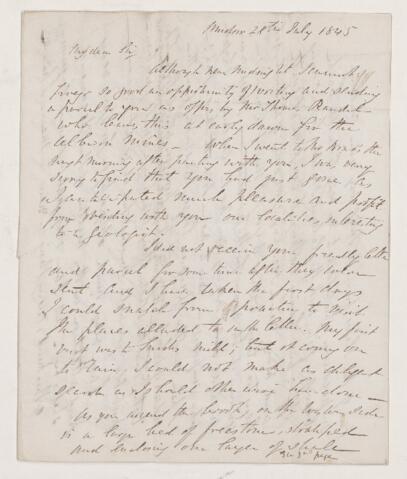 Windsor 28th July 1845
My dear Sir
Although near Midnight I cannot
forego so good an opportunity of writing and sending
a parcel to you as offers by Mr Thomas Randal
who leaves this at early dawn for the
Albion Mines – When I went to the
next morning after parting with you, I was very
sorry to find that you had just gone, as
I anticipated much pleasure and profit
from visiting with you our localities interesting
to a geologist.
I did not receive your friendly letter
and parcel for some time after they were
sent and I have taken the first days
I could snatch from practice, to visit
the places alluded to in the letter. My first
visit was to mills; but it coming on
to rain, I could not make as diligent
search as I should otherwise have done –
As you ascend the brook, on the western side
is a large bed of freestone,
and enclosing one layer of shale
page